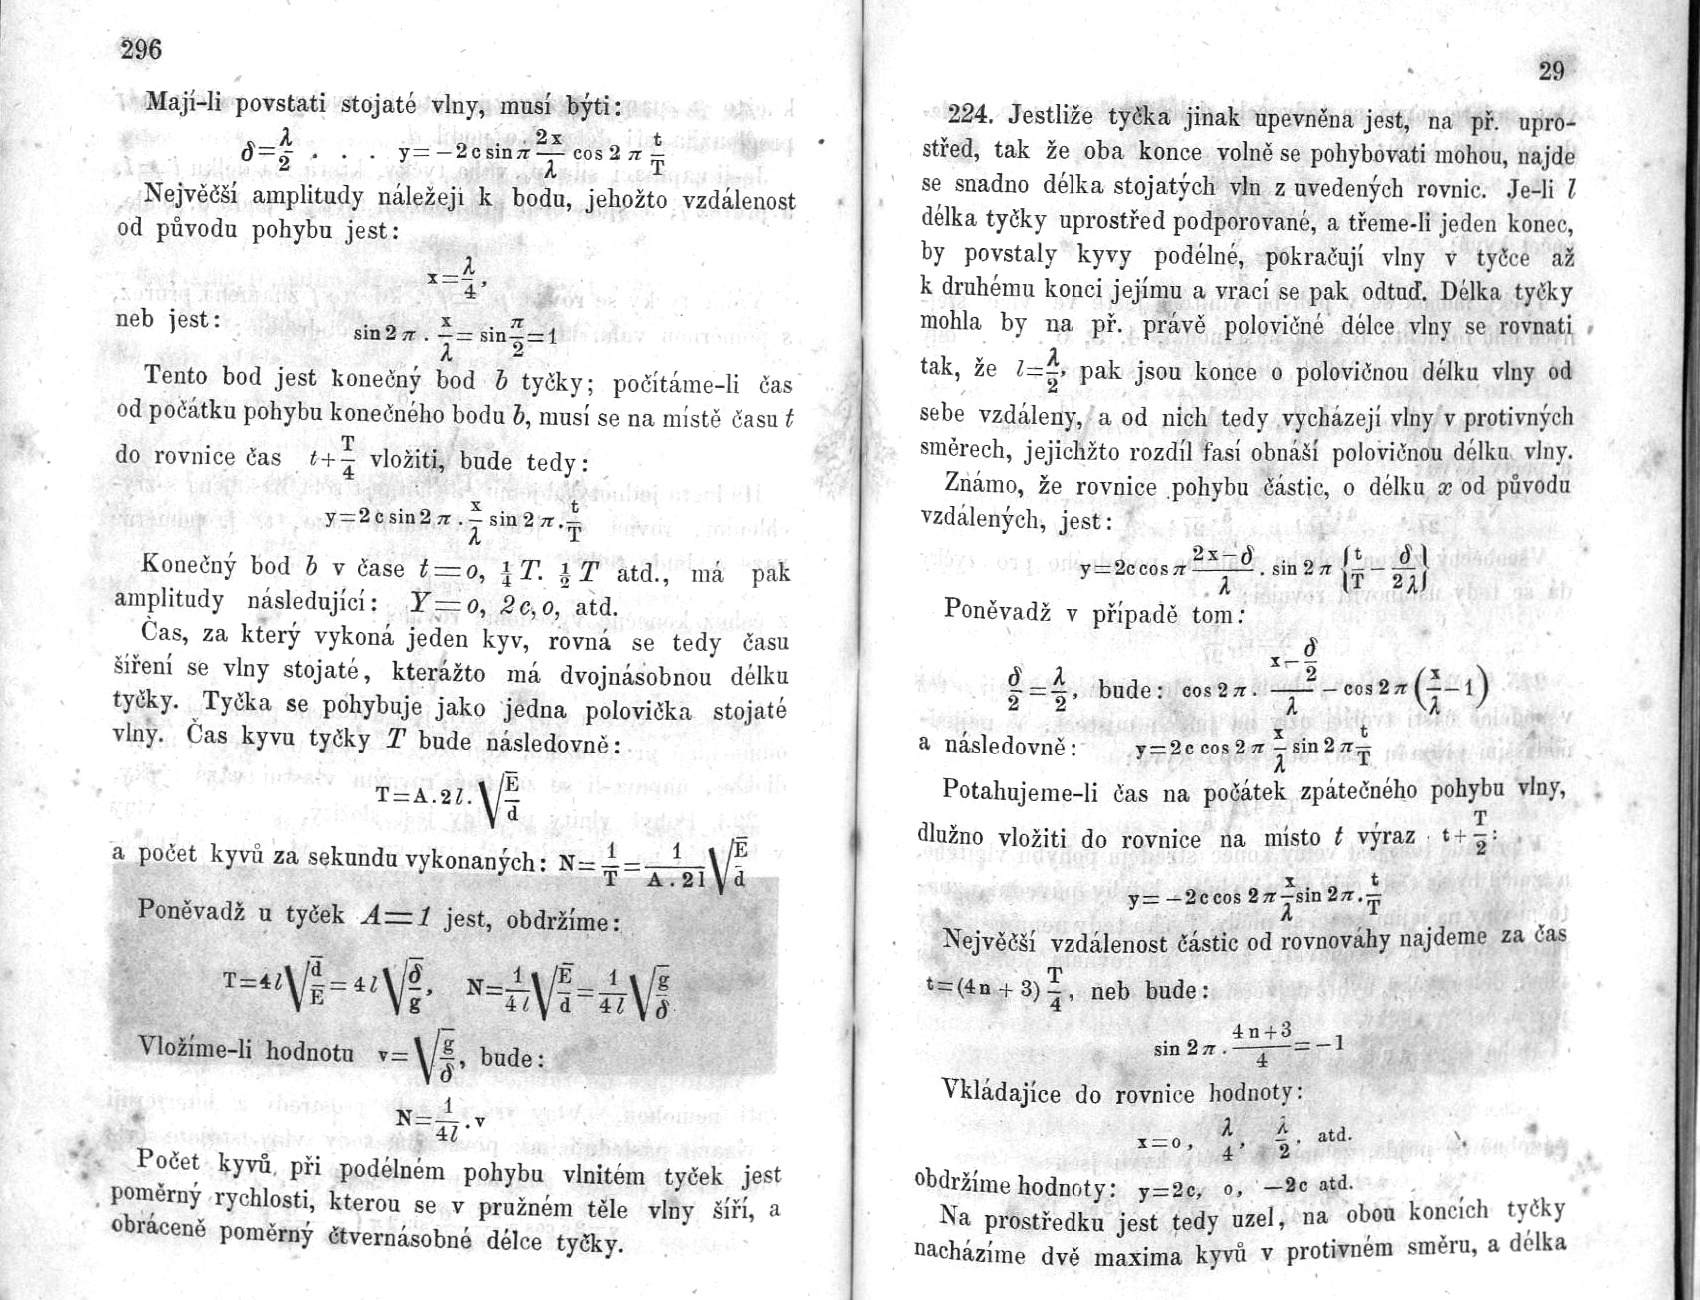 296
Mají-li povstati stojaté vlny, musí býti:
δ=λ/2 . . . y=−2c sin π 2x/λ cos 2 π t/T
Největší amplitudy náležejí k bodu, jehožto vzdálenost
od původu pohybu jest:
x=λ/4,
neb jest: sin 2 π . x/λ = sin π/2 = 1
Tento bod jest konečný bod b tyčky; počítáme-li čas
od počátku pohybu konečného bodu b, musí se na místě času t
do rovnice čas t+T/4 vložiti, bude tedy:
y=2c sin 2 π . x/λ sin 2 π . t/T
Konečný bod b v čase t=o, ¼T. ½T atd., má pak
amplitudy následující: Y=o, 2c, o, atd.
Čas, za který vykoná jeden kyv, rovná se tedy času
šíření se vlny stojaté, kterážto má dvojnásobnou délku
tyčky. Tyčka se pohybuje jako jedna polovička stojaté
vlny. Čas kyvu tyčky T bude následovně:
T=A.2l.√E/d
a počet kyvů za sekundu vykonaných: N=1/T=1/A.2l √E/d
Poněvadž u tyček A=1 jest, obdržíme:
T=4l√d/E=4l√δ/g, N=1/4l√E/d=1/4l√g/δ
Vložíme-li hodnotu v=√g/δ, bude:
N=1/4l.v
Počet kyvů při podélném pohybu vlnitém tyček jest
poměrný rychlosti, kterou se v pružném těle vlny šíří, a
obráceně poměrný čtvernásobné délce tyčky.
29
224. Jestliže tyčka jinak upevněna jest, na př. upro-
střed, tak že oba konce volně se pohybovati mohou, najde
se snadno délka stojatých vln z uvedených rovnic. Je-li l
délka tyčky uprostřed podporované, a třeme-li jeden konec,
by povstaly kyvy podélné, pokračují vlny v tyčce až
k druhému konci jejímu a vrací se pak odtuď. Délka tyčky
mohla by na př. právě polovičné délce vlny se rovnati
tak, že l=λ/2, pak jsou konce o polovičnou délku vlny od
sebe vzdáleny, a od nich tedy vycházejí vlny v protivných
směrech, jejichžto rozdíl fasí obnáší polovičnou délku vlny.
Známo, že rovnice pohybu částic, o délku x od původu
vzdálených, jest:
y=2c cos π 2x−δ/λ . sin 2 π {t/T − δ/2λ}
Poněvadž v případě tom:
δ/2=λ/2, bude: cos 2 π . x−δ/2/λ − cos 2 π (x/λ−1)
a následovně: y=2c cos 2 π x/λ sin 2 π t/T
Potahujeme-li čas na počátek zpátečného pohybu vlny,
dlužno vložiti do rovnice na místo t výraz t+T/2:
y=−2c cos 2 π x/λ sin 2 π . t/T
Největší vzdálenost částic od rovnováhy najdeme za čas
t=(4n+3) T/4, neb bude:
sin 2 π . 4n+3/4=−1
Vkládajíce do rovnice hodnoty:
x=o, λ/4, λ/2, atd.
obdržíme hodnoty: y=2c, o, −2c atd.
Na prostředku jest tedy uzel, na obou koncích tyčky
nacházíme dvě maxima kyvů v protivném směru, a délka